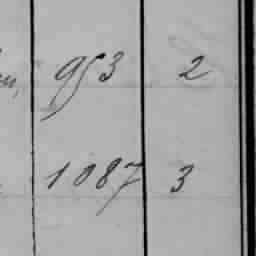 953 2
1087 3